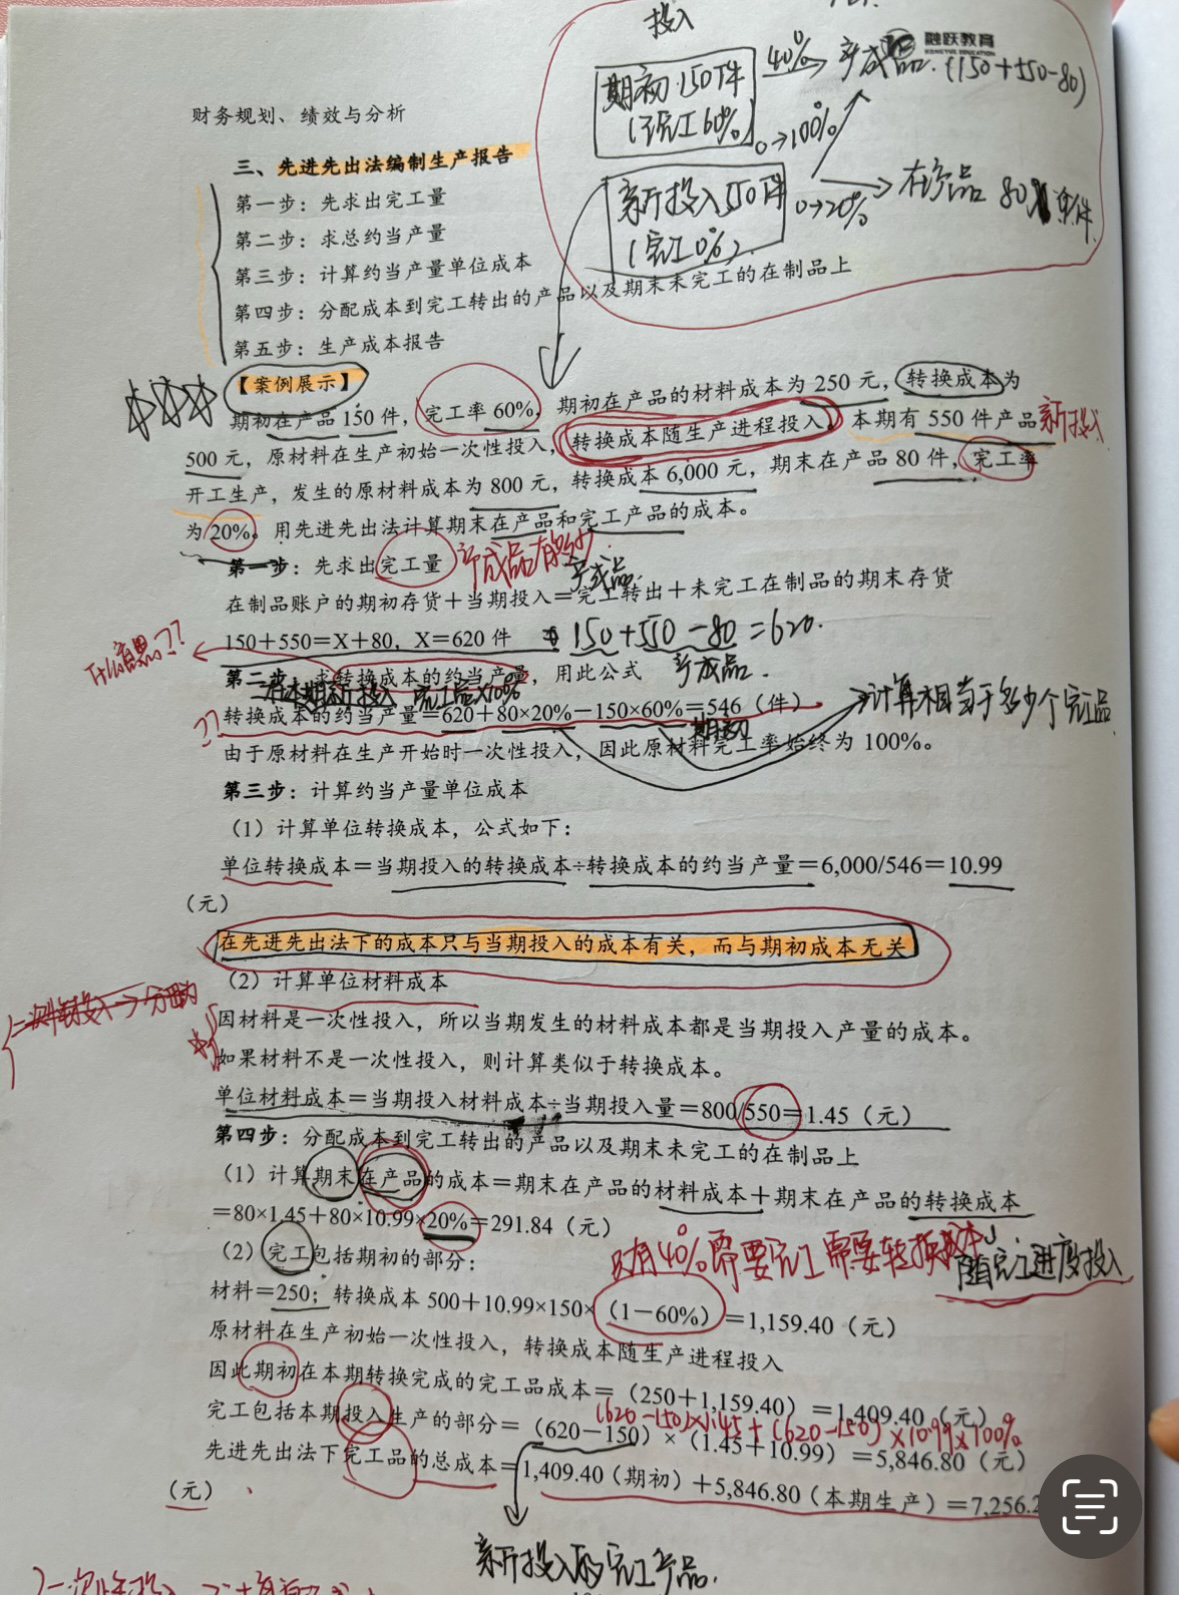 投入
融跃教育
期初150件 40% 产成品.(150+550-80)
(完工60%) 0→100%
新投入550件 0→20% 在产品 80件
(完工0%)
财务规划、绩效与分析
三、先进先出法编制生产报告
第一步：先求出完工量
第二步：求总约当产量
第三步：计算约当产量单位成本
第四步：分配成本到完工转出的产品以及期末未完工的在制品上
第五步：生产成本报告
【案例展示】
期初在产品 150 件，完工率 60%，期初在产品的材料成本为 250 元，转换成本为
500 元，原材料在生产初始一次性投入，转换成本随生产进程投入。本期有 550 件产品 新投入
开工生产，发生的原材料成本为 800 元，转换成本 6,000 元，期末在产品 80 件，完工率
为 20%。用先进先出法计算期末在产品和完工产品的成本。
第一步：先求出完工量 产成品有多少
产成品
在制品账户的期初存货＋当期投入＝完工转出＋未完工在制品的期末存货
150＋550＝X＋80，X＝620 件 150+550-80=620.
什么意思??
第二步：求转换成本的约当产量，用此公式 产成品.
本期新投入 完工品×100%
转换成本的约当产量＝620＋80×20%－150×60%＝546（件） 计算相当于多少个完工品
??
期初
由于原材料在生产开始时一次性投入，因此原材料完工率始终为 100%。
第三步：计算约当产量单位成本
（1）计算单位转换成本，公式如下：
单位转换成本＝当期投入的转换成本÷转换成本的约当产量＝6,000/546＝10.99
（元）
在先进先出法下的成本只与当期投入的成本有关，而与期初成本无关
（2）计算单位材料成本
因材料是一次性投入，所以当期发生的材料成本都是当期投入产量的成本。
如果材料不是一次性投入，则计算类似于转换成本。
单位材料成本＝当期投入材料成本÷当期投入量＝800/550＝1.45（元）
第四步：分配成本到完工转出的产品以及期末未完工的在制品上
（1）计算期末在产品的成本＝期末在产品的材料成本＋期末在产品的转换成本
＝80×1.45＋80×10.99×20%＝291.84（元）
只有40%需要完工 需要转换成本
随完工进度投入
（2）完工包括期初的部分：
材料＝250；转换成本 500＋10.99×150×（1－60%）＝1,159.40（元）
原材料在生产初始一次性投入，转换成本随生产进程投入
因此期初在本期转换完成的完工品成本＝（250＋1,159.40）＝1,409.40（元）
(620-150)×1.45+(620-150)×10.99×100%
完工包括本期投入生产的部分＝（620－150）×（1.45＋10.99）＝5,846.80（元）
先进先出法下完工品的总成本＝1,409.40（期初）＋5,846.80（本期生产）＝7,256.2
（元）
新投入的完工产品.